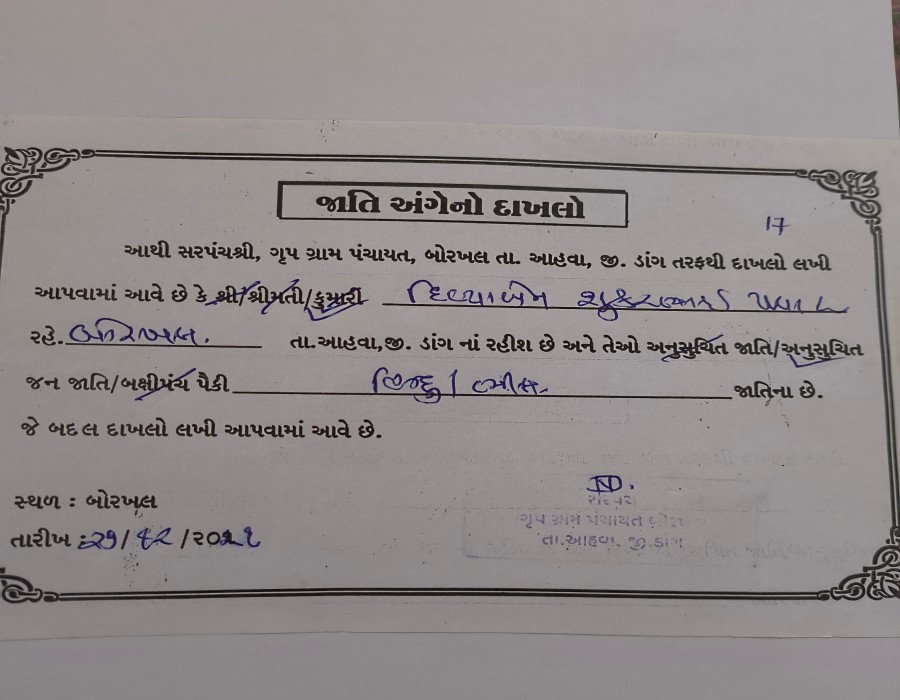 જાતિ અંગેનો દાખલો
17
આથી સરપંચશ્રી, ગૃપ ગ્રામ પંચાયત, બોરખલ તા. આહવા, જી. ડાંગ તરફથી દાખલો લખી
આપવામાં આવે છે કે શ્રી/શ્રીમતી/કુમારી દિવ્યાબેન પવાર
રહે. તા.આહવા,જી. ડાંગ નાં રહીશ છે અને તેઓ અનુસુચિત જાતિ/અનુસુચિત
જન જાતિ/બક્ષીપંચ પૈકી હિન્દુ / જાતિના છે.
જે બદલ દાખલો લખી આપવામાં આવે છે.
સ્થળ : બોરખલ
સરપંચ
ગૃપ ગ્રામ પંચાયત
તારીખ :
તા.આહવા, જી.ડાંગ